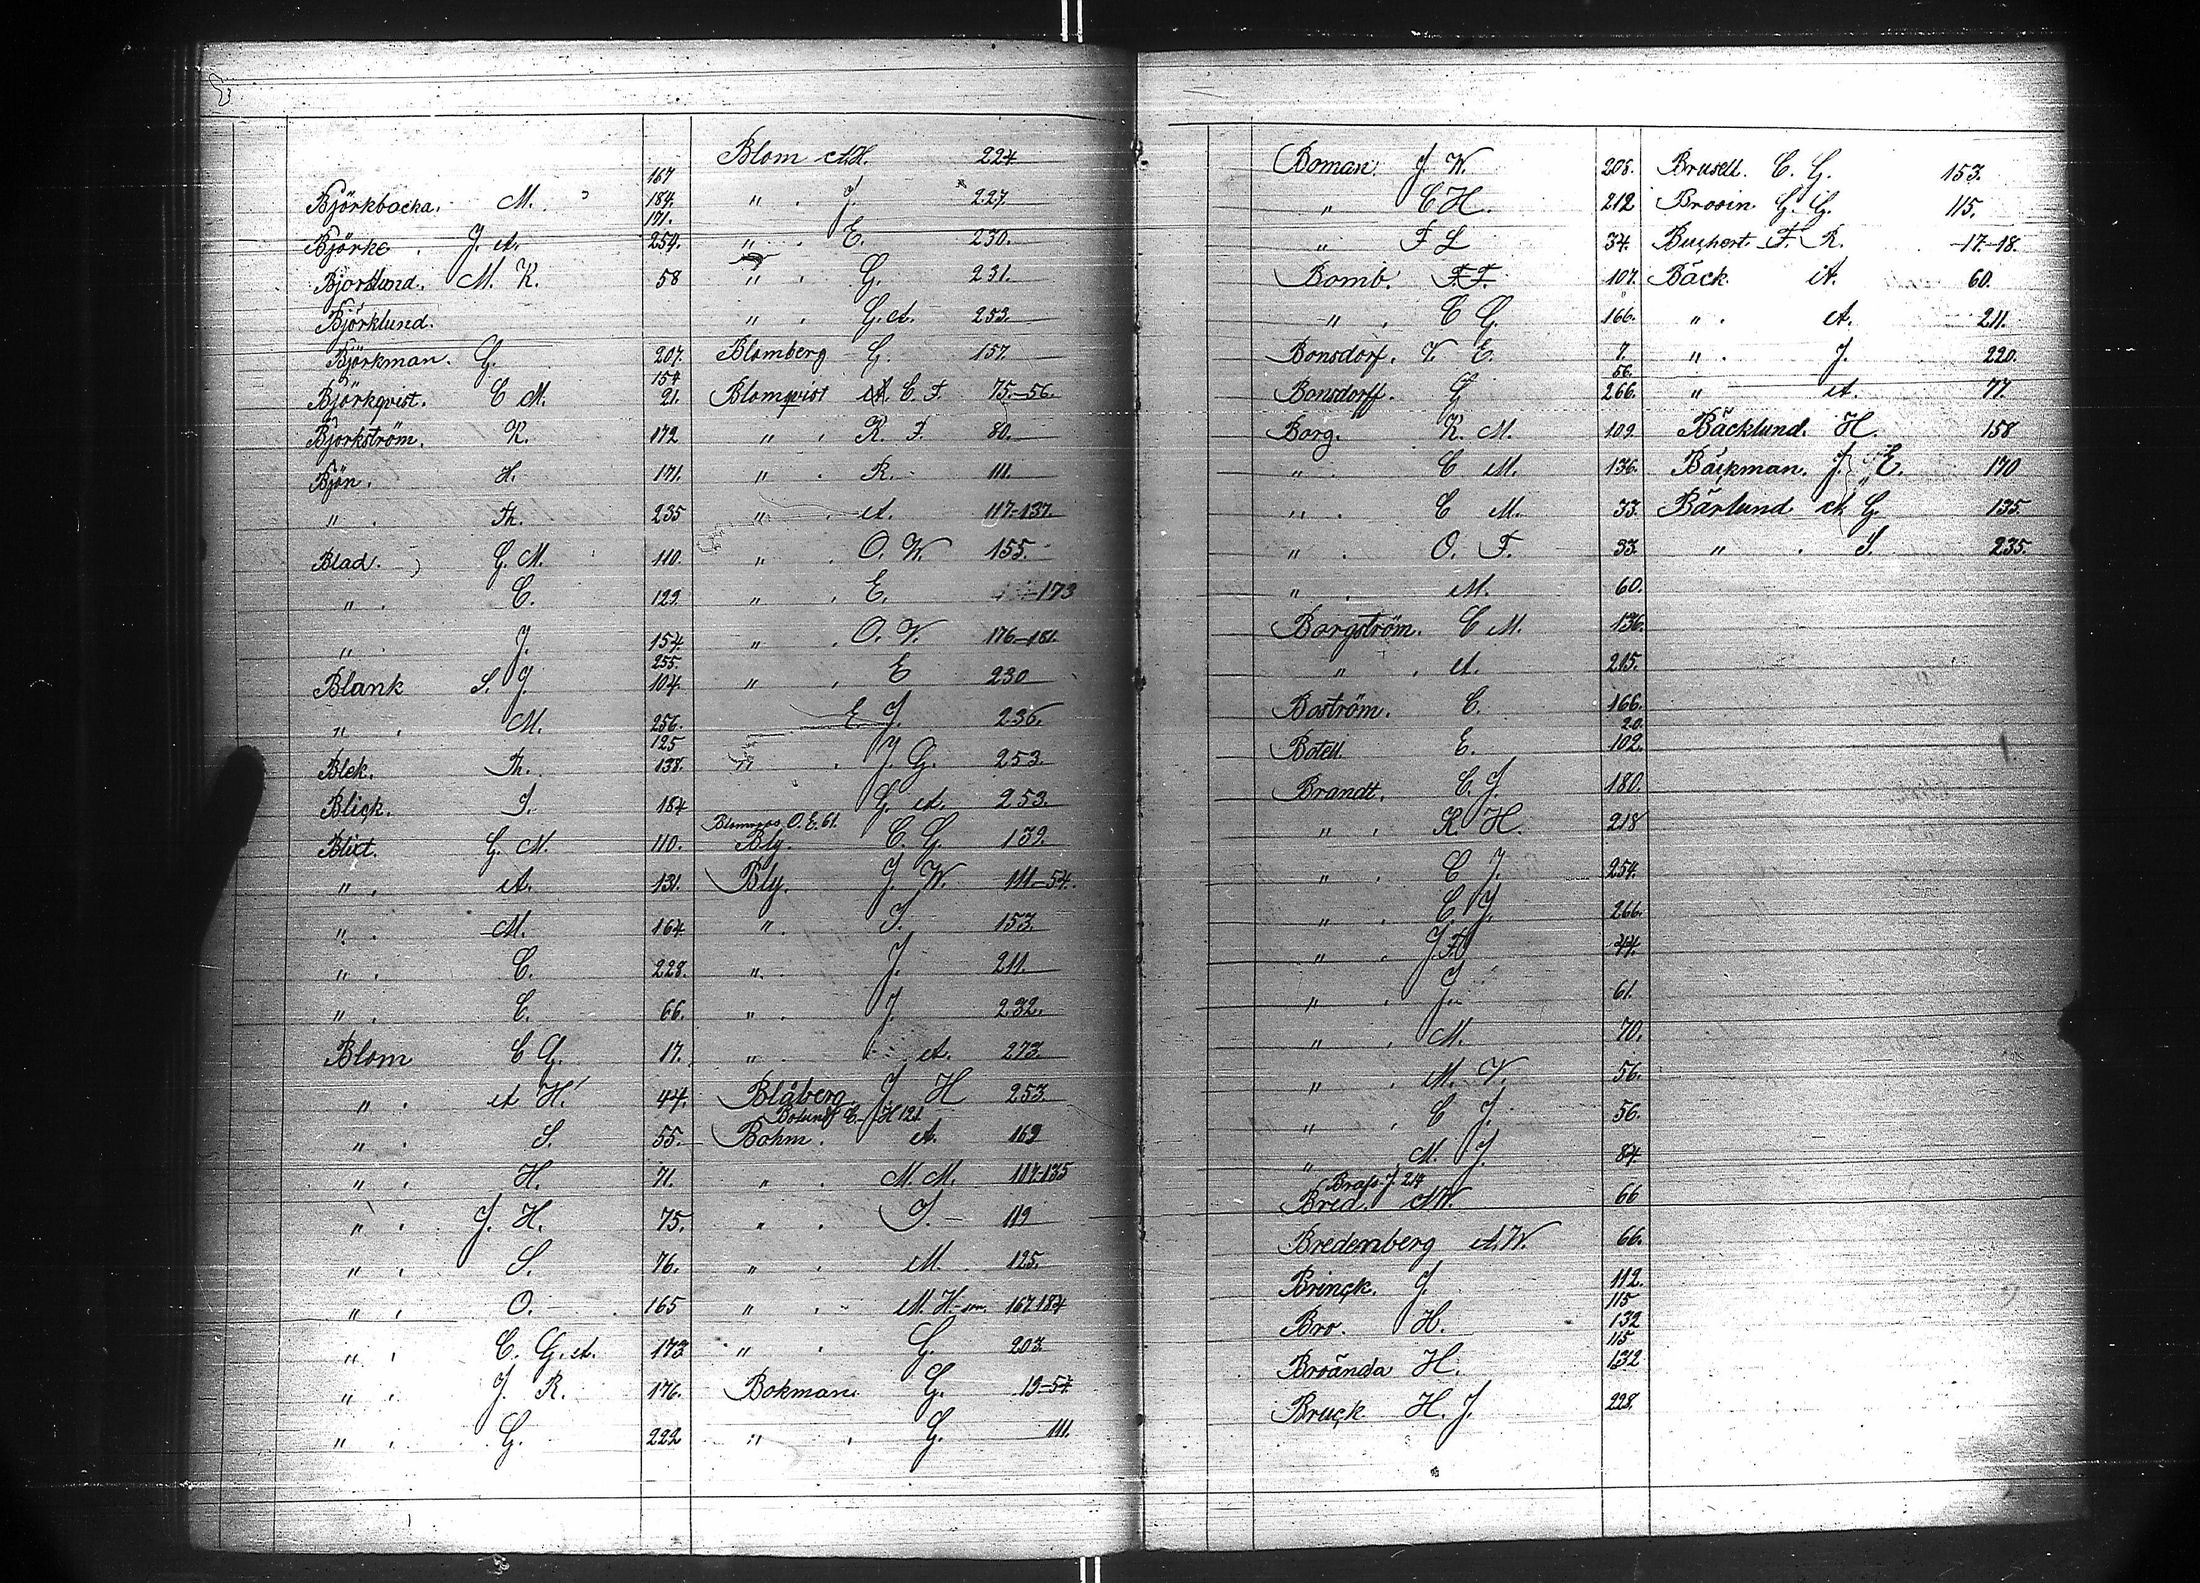 Björkbacka. M. 167 184.
Björke. J. A. 171. 254.
Björklund. M. K. 58
Björklund.
Björkman. G. 207.
Björkqvist. C M. 154 21.
Björkström. K. 172
Bjön. H. 171.
" . Th. 235
Blad. G. M. 110.
" . C. 129.
" . J. 154.
Blank S. J. 255. 104.
" . M. 256.
Blek. Th. 125 138.
Bliçk. J. 184
Blixt. G. M. 110.
" . A. 131.
" . M. 164.
" . C. 228.
" . C. 66.
Blom C G. 17.
" . A H. 44.
" . S. 55.
" . H. 71.
" . J. H. 75.
" . S. 76.
" . O. 165
" . C. G. A. 173
" . J. R. 176.
" . G. 222
Blom A.H. 224
" . J. 227.
" . E. 230.
" . G. 231.
" . G. A. 253.
Blomberg G. 157.
Blomqvist C. F. 75.-56.
" . K. F. 80.
" . R. 111.
" . A. 117-137.
" . O. W. 155.
" . E. -173
" . O. V. 176-181.
" . E 230
E J. 236.
" . J G. 253.
G. A. 253.
O. E. 61.
Bly. C. G. 139.
Bly. J. W. 111-54.
" . J. 153.
" . J. 211.
" . J. 232.
" . A. 273.
Blåberg. J. H 253.
C. H 121
Bohm. A. 169
" . M. M. 117-135
" . J. 119
" . M. 125.
" . M. H-son 167.184
" . G. 203.
Bokman. G. 19-54
" . G. 111.
Boman. J. W. 208.
" C H. 212
" F L 34.
Bomb. F. F. 107.
" . C G. 166.
Bonsdorf. V. E. 7.
Bonsdorff. G. 56. 266.
Borg. K. M. 109.
" . C M. 136.
" . C M. 33.
" . O. F. 33.
" . M. 60.
Borgström. C M. 136.
" . A. 215.
Boström. C. 166.
Botell E. 20. 102.
Brandt. C. J 180.
" . K H. 218
" . C J. 254.
" . C. J. 266.
" . J. F. 44.
" . J. 61.
" . M. 70.
" . M. V. 56.
" . C J. 56.
" M. J. 84
Brass J. 24
Bred. A.W. 66
Bredenberg A.W. 66.
Brinçk. J. 112.
Bro. H. 115 132
Broända H. 115 132
Bruçk H. J. 228.
Brusell. C. G. 153.
Brosin G. G. 115.
Buchert. F. R. -17.-18.
Bäck. A. 60.
" . A. 211.
" . J. 220.
" A. 77.
Bäcklund. H. 158
Bäçkman. J. E. 170
Bärlund A G. 135.
" . J. 235.